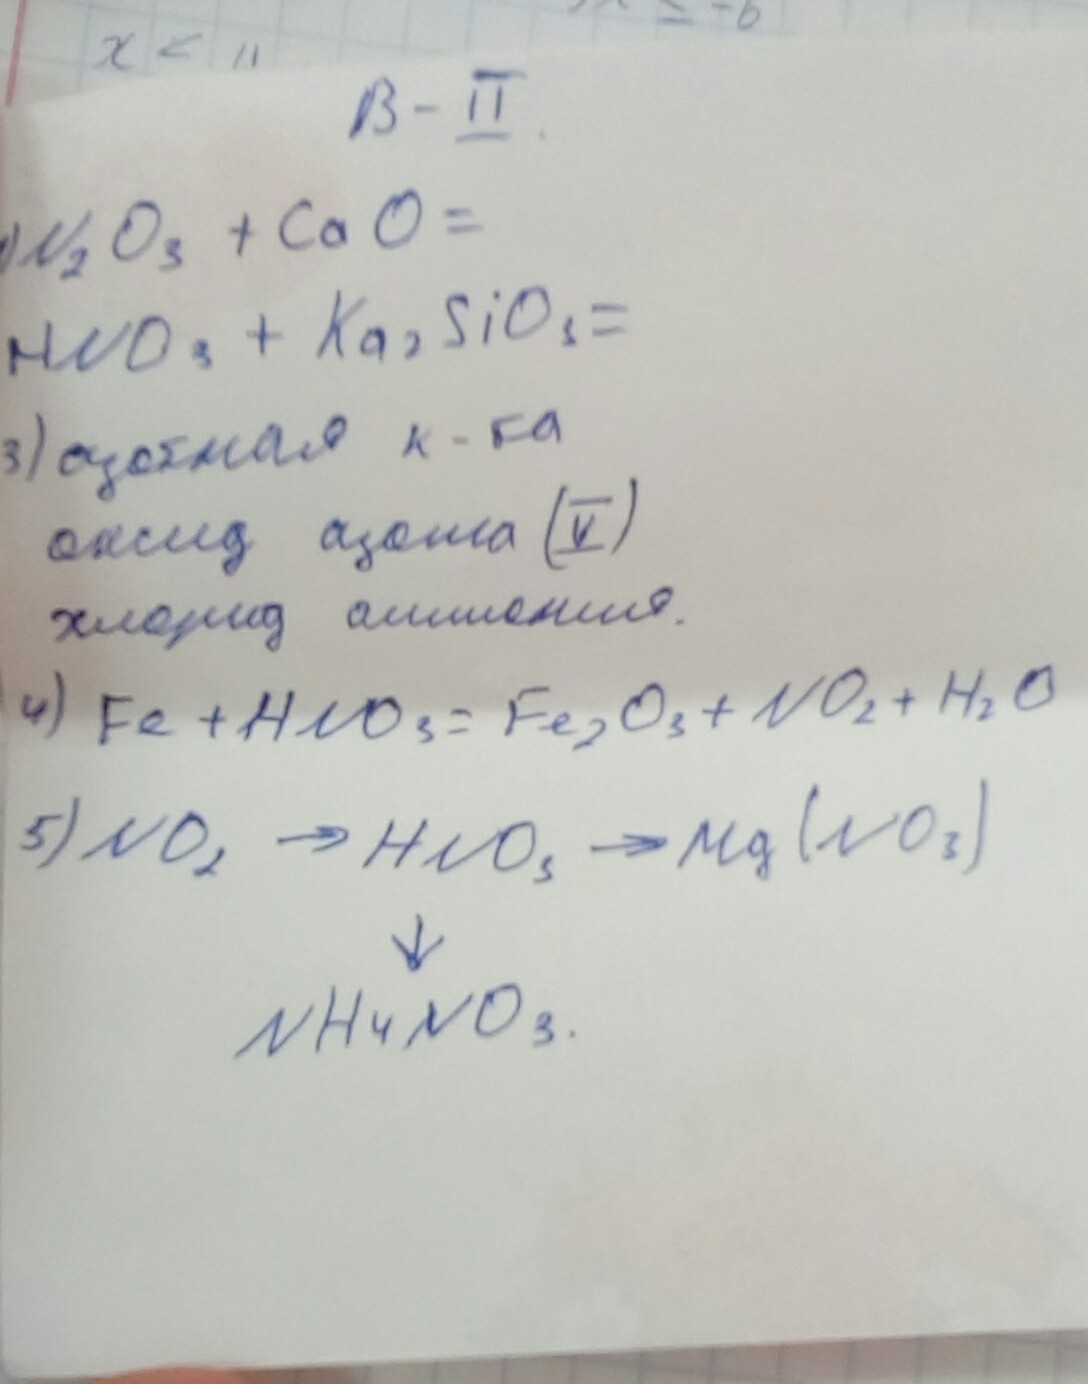 x <
≥ -6
В - II.
1) N₂O₃ + CaO =
HNO₃ + Ka₂SiO₃ =
3) азотная к-та
оксид азота (V)
хлорид аммония.
4) Fe + HNO₃ = Fe₂O₃ + NO₂ + H₂O
5) NO₂ → HNO₃ → Mg(NO₃)
↓
NH₄NO₃.